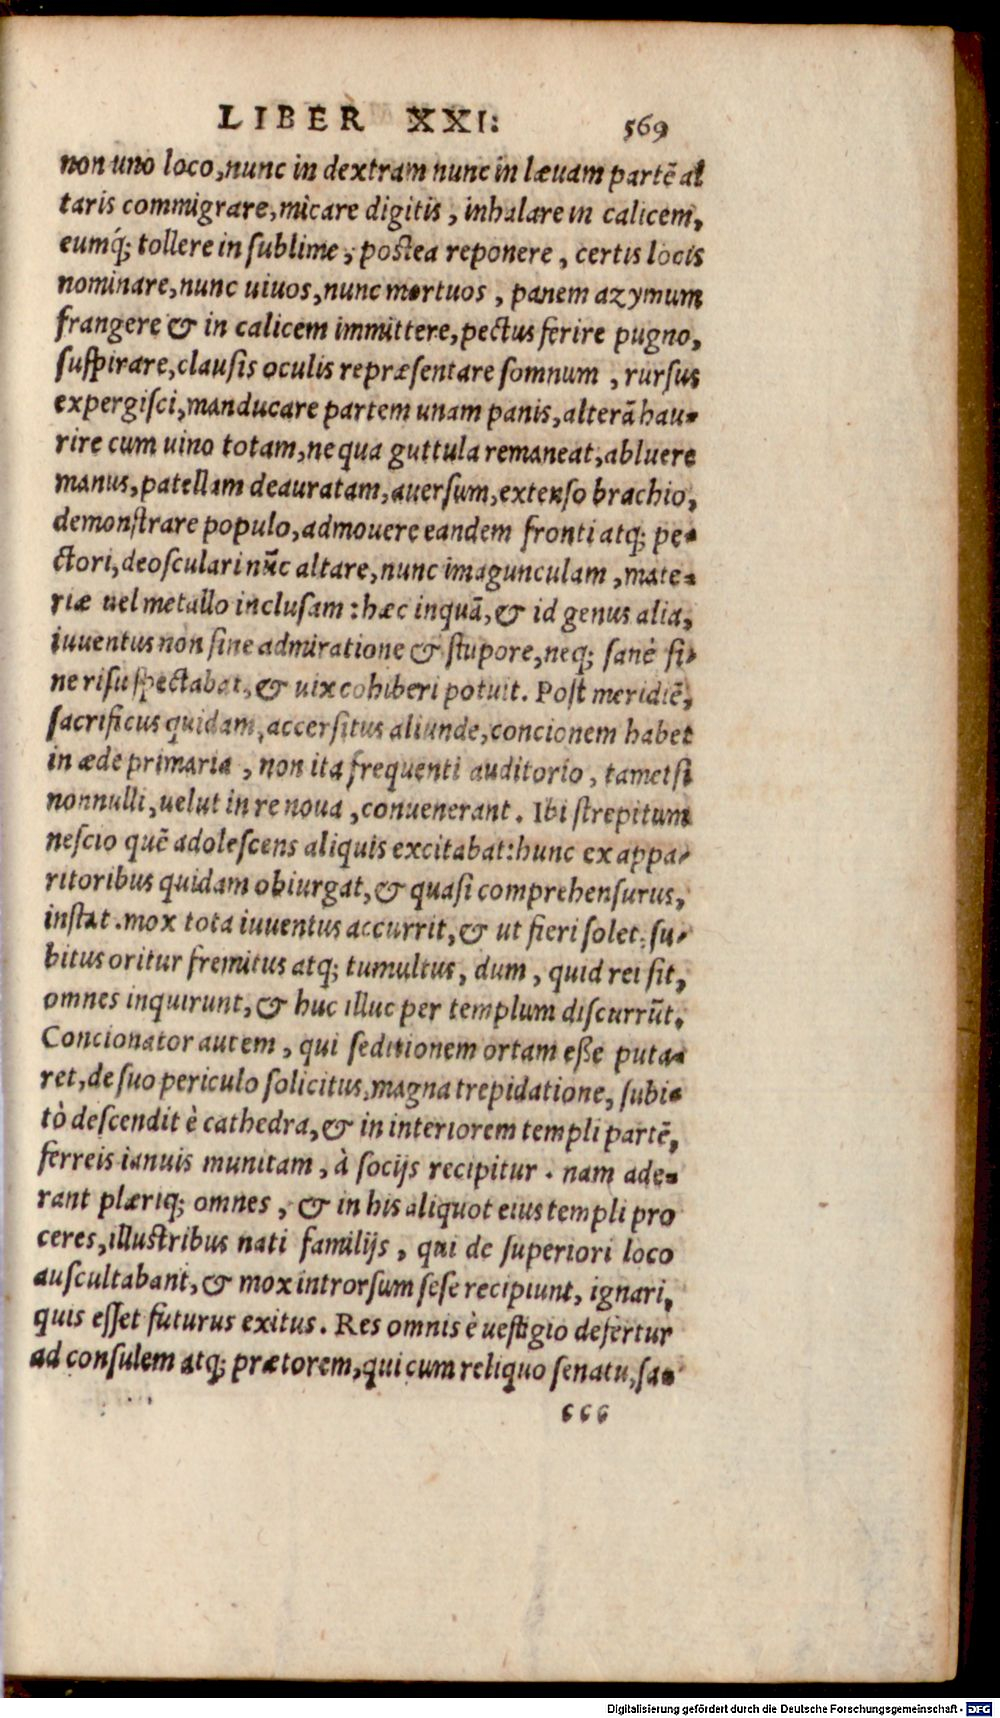 LIBER XXI: 569
non uno loco, nunc in dextram nunc in læuam partē al
taris commigrare, micare digitis, inhalare in calicem,
eumq́; tollere in sublime, postea reponere, certis locis
nominare, nunc uiuos, nunc mortuos, panem azymum
frangere & in calicem immittere, pectus ferire pugno,
suspirare, clausis oculis repræsentare somnum, rursus
expergisci, manducare partem unam panis, alterā hau-
rire cum uino totam, ne qua guttula remaneat, abluere
manus, patellam deauratam, auersum, extenso brachio,
demonstrare populo, admouere eandem fronti atq; pe-
ctori, deosculari nūc altare, nunc imagunculam, mate-
riæ uel metallo inclusam: hæc inquā, & id genus alia,
iuuentus non sine admiratione & stupore, neq; sanè si-
ne risu spectabat, & uix cohiberi potuit. Post meridiē,
sacrificus quidam, accersitus aliunde, concionem habet
in æde primaria, non ita frequenti auditorio, tametsi
nonnulli, uelut in re noua, conuenerant. Ibi strepitum
nescio quē adolescens aliquis excitabat: hunc ex appa-
ritoribus quidam obiurgat, & quasi comprehensurus,
instat. mox tota iuuentus accurrit, & ut fieri solet, su-
bitus oritur fremitus atq; tumultus, dum, quid rei sit,
omnes inquirunt, & huc illuc per templum discurrūt.
Concionator autem, qui seditionem ortam eße puta-
ret, de suo periculo solicitus, magna trepidatione, subi-
tò descendit è cathedra, & in interiorem templi partē,
ferreis ianuis munitam, à socijs recipitur. nam ade-
rant plæriq; omnes, & in his aliquot eius templi pro
ceres, illustribus nati familijs, qui de superiori loco
auscultabant, & mox introrsum sese recipiunt, ignari,
quis esset futurus exitus. Res omnis è uestigio defertur
ad consulem atq; prætorem, qui cum reliquo senatu, sa-
ccc
Digitalisierung gefördert durch die Deutsche Forschungsgemeinschaft - DFG